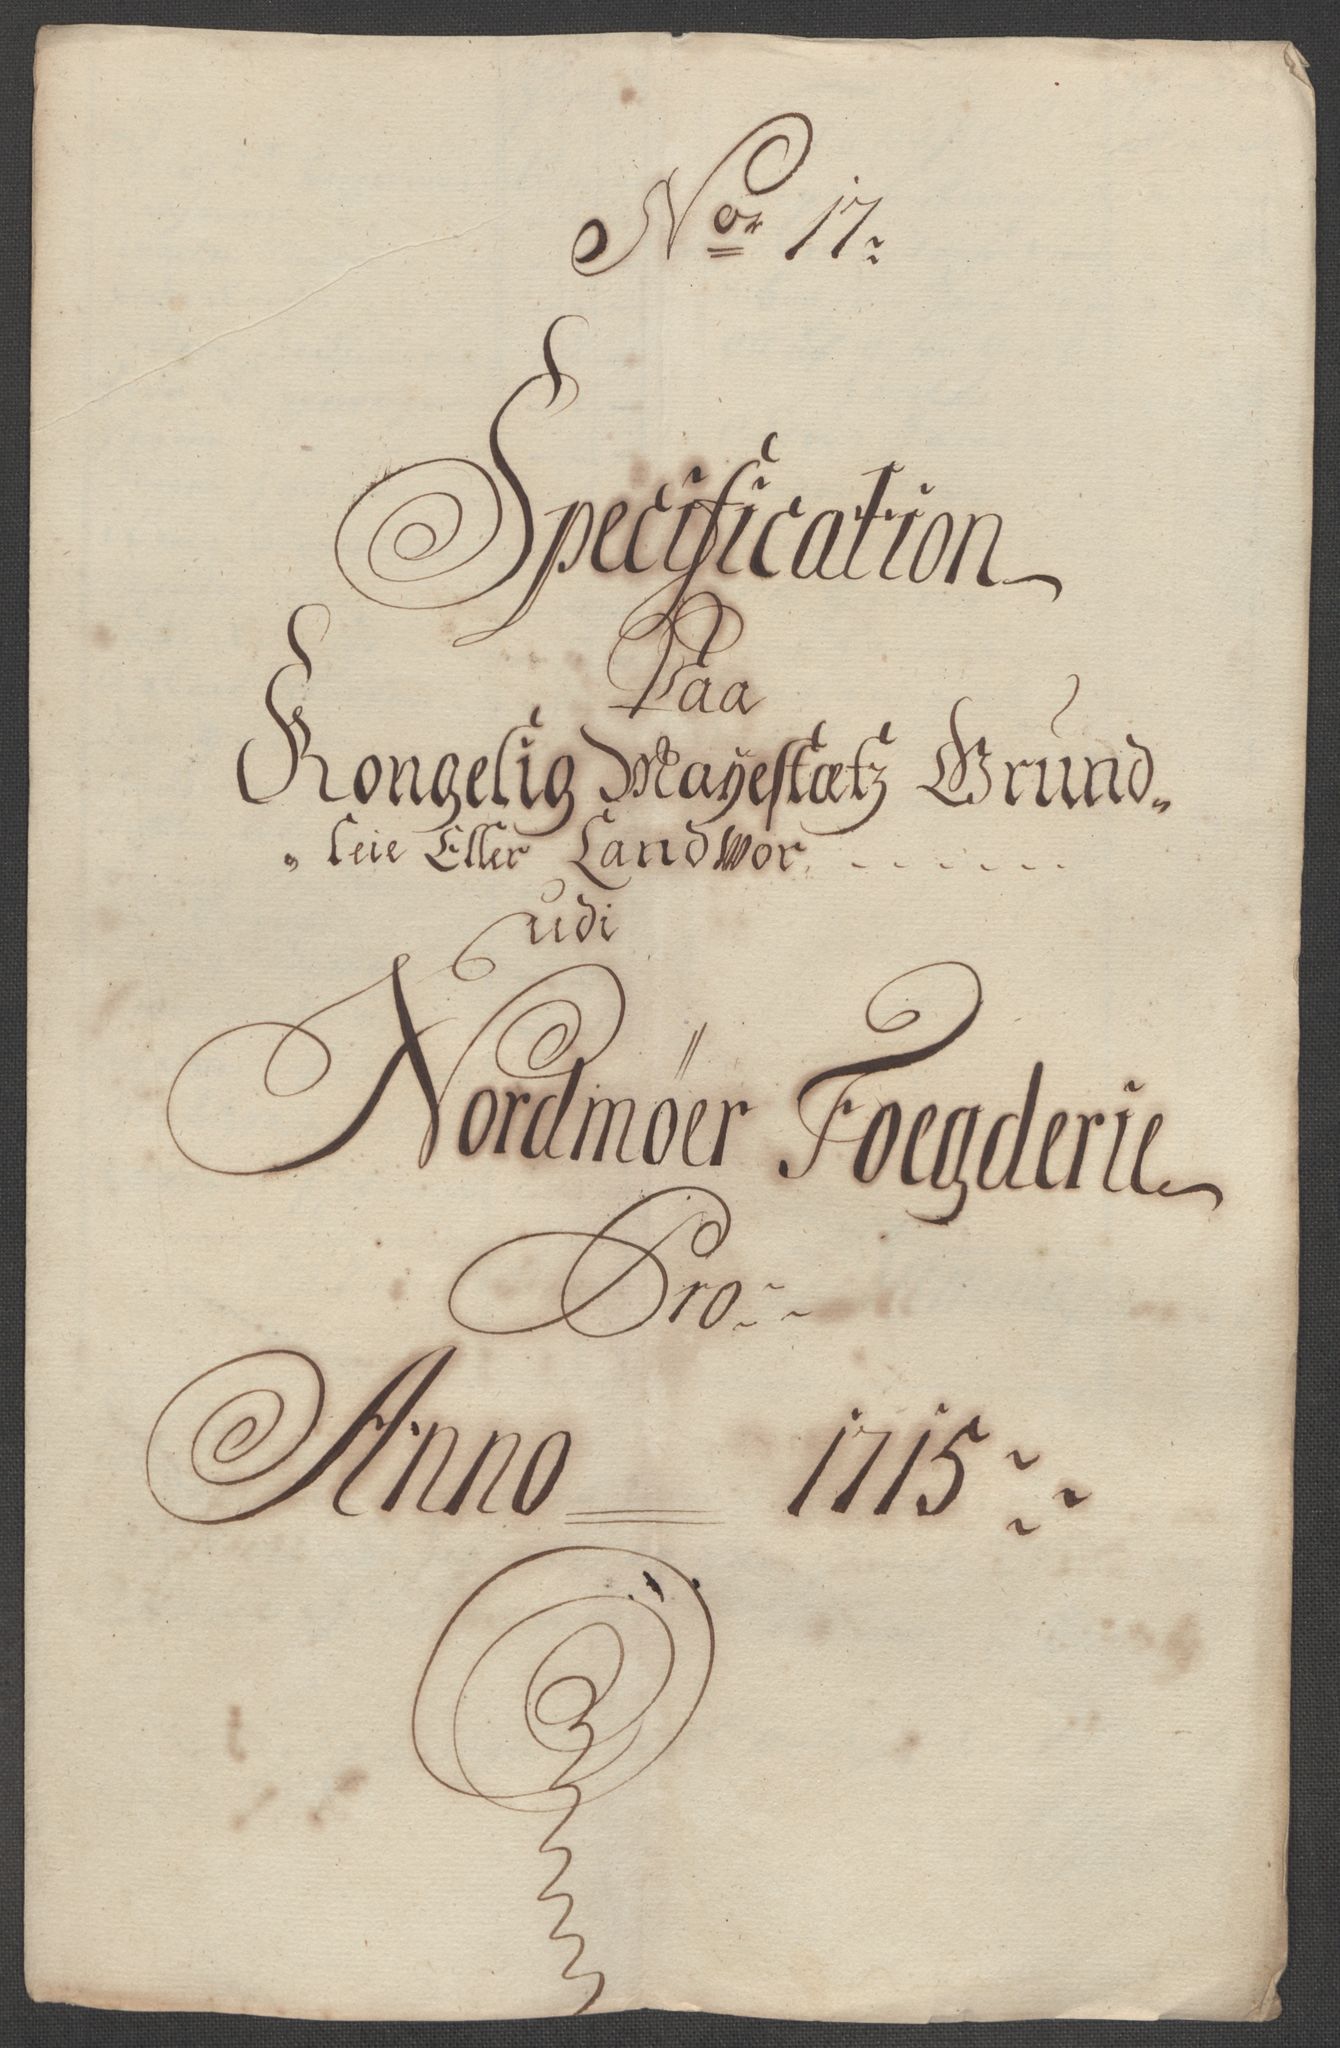 No 17
Specification
Paa
Kongelig Mayestætz Grund„
„leie Eller Landwor
udi
Nordmöer Foegderie
Pro
Anno 1715